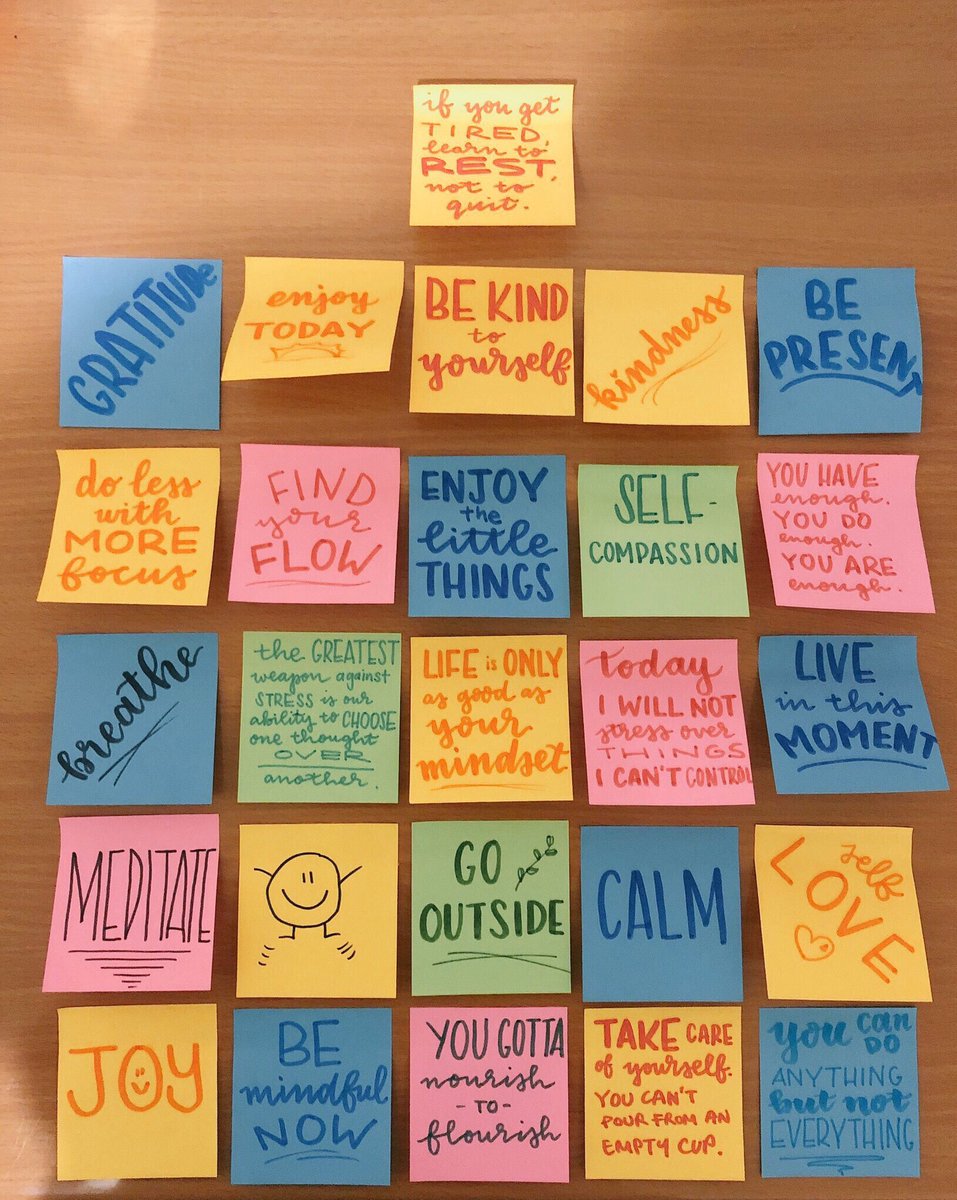 if you get
TIRED,
learn to
REST,
not to
quit.
GRATITUDe
enjoy
TODAY
BE KIND
to
yourself
kindness
BE
PRESENT
do less
with
MORE
focus
FIND
your
FLOW
ENJOY
the
little
THINGS
SELF-
COMPASSION
YOU HAVE
enough.
YOU DO
enough.
YOU ARE
enough.
breathe
the GREATEST
weapon against
STRESS is our
ability to CHOOSE
one thought
OVER
another.
LIFE is ONLY
as good as
your
mindset.
today
I WILL NOT
stress over
THINGS
I CAN'T CONTROL
LIVE
in this
MOMENT
MEDITATE
GO
OUTSIDE
CALM
self
LOVE
JOY
BE
mindful
NOW
YOU GOTTA
nourish
-TO-
flourish
TAKE CARE
of yourself.
YOU CAN'T
POUR FROM AN
EMPTY CUP.
you can
DO
ANYTHING
but not
EVERYTHING